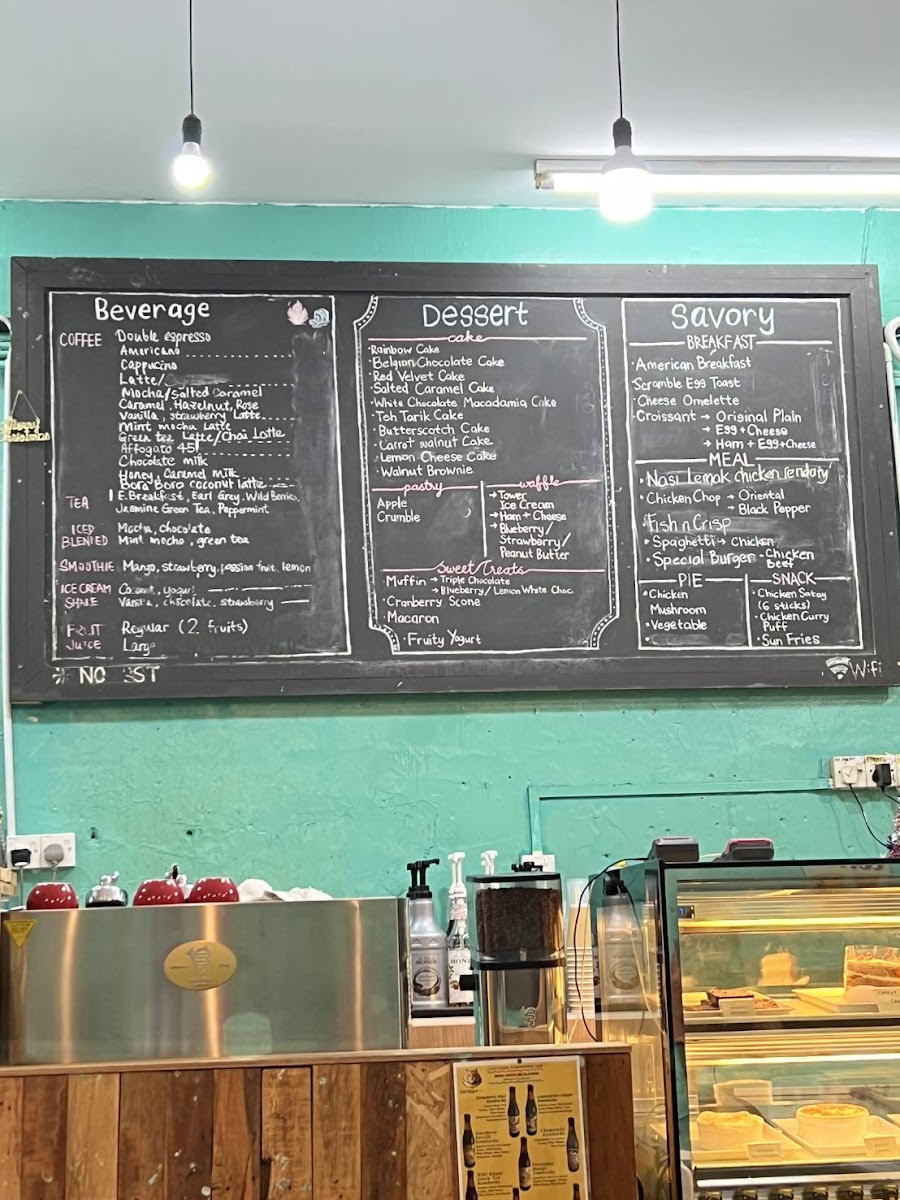 Beverage
COFFEE
Double espresso
Americano
Cappucino
Latte/
Mocha/Salted Caramel
Caramel, Hazelnut, Rose
Vanilla, Strawberry Latte
Mint mocha Latte
Green tea Latte/Chai Latte
Affogato
Chocolate milk
Honey, Caramel milk
Bora Bora coconut latte
TEA
E.Breakfast, Earl Grey, Wild Berries,
Jasmine Green Tea, Peppermint
ICED
BLENDED
Mocha, chocolate
Mint mocha, green tea
SMOOTHIE
Mango, strawberry, passion fruit, lemon
ICE CREAM
SHAKE
Coconut, yogurt
Vanilla, chocolate, strawberry
FRUIT
JUICE
Regular (2 fruits)
NO
ST
Dessert
cake
·Rainbow Cake
·Belgian Chocolate Cake
Red Velvet Cake
·Salted Caramel Cake
·White Chocolate Macadamia Cake
·Teh Tarik Cake
·Butterscotch Cake
·Carrot walnut Cake
·Lemon Cheese Cake
·Walnut Brownie
pastry
Apple
Crumble
waffle
→Tower
Ice Cream
→Ham + Cheese
→Blueberry/
Strawberry/
Peanut Butter
Sweet Treats
·Muffin → Triple Chocolate
→Blueberry/Lemon White Choc
·Cranberry Scone
·Macaron
·Fruity Yogurt
Savory
BREAKFAST
·American Breakfast
·Scramble Egg Toast
·Cheese Omelette
·Croissant → Original Plain
→ Egg+Cheese
→ Ham + Egg+Cheese
MEAL
·Nasi Lemak chicken rendang
·Chicken Chop → Oriental
→ Black Pepper
·Fish n Crisp
·Spaghetti → Chicken
·Special Burger -Chicken
Beef
PIE
·Chicken
Mushroom
·Vegetable
SNACK
·Chicken Satay
(6 sticks)
·Chicken Curry
Puff
·Sun Fries
Wifi
MONIN